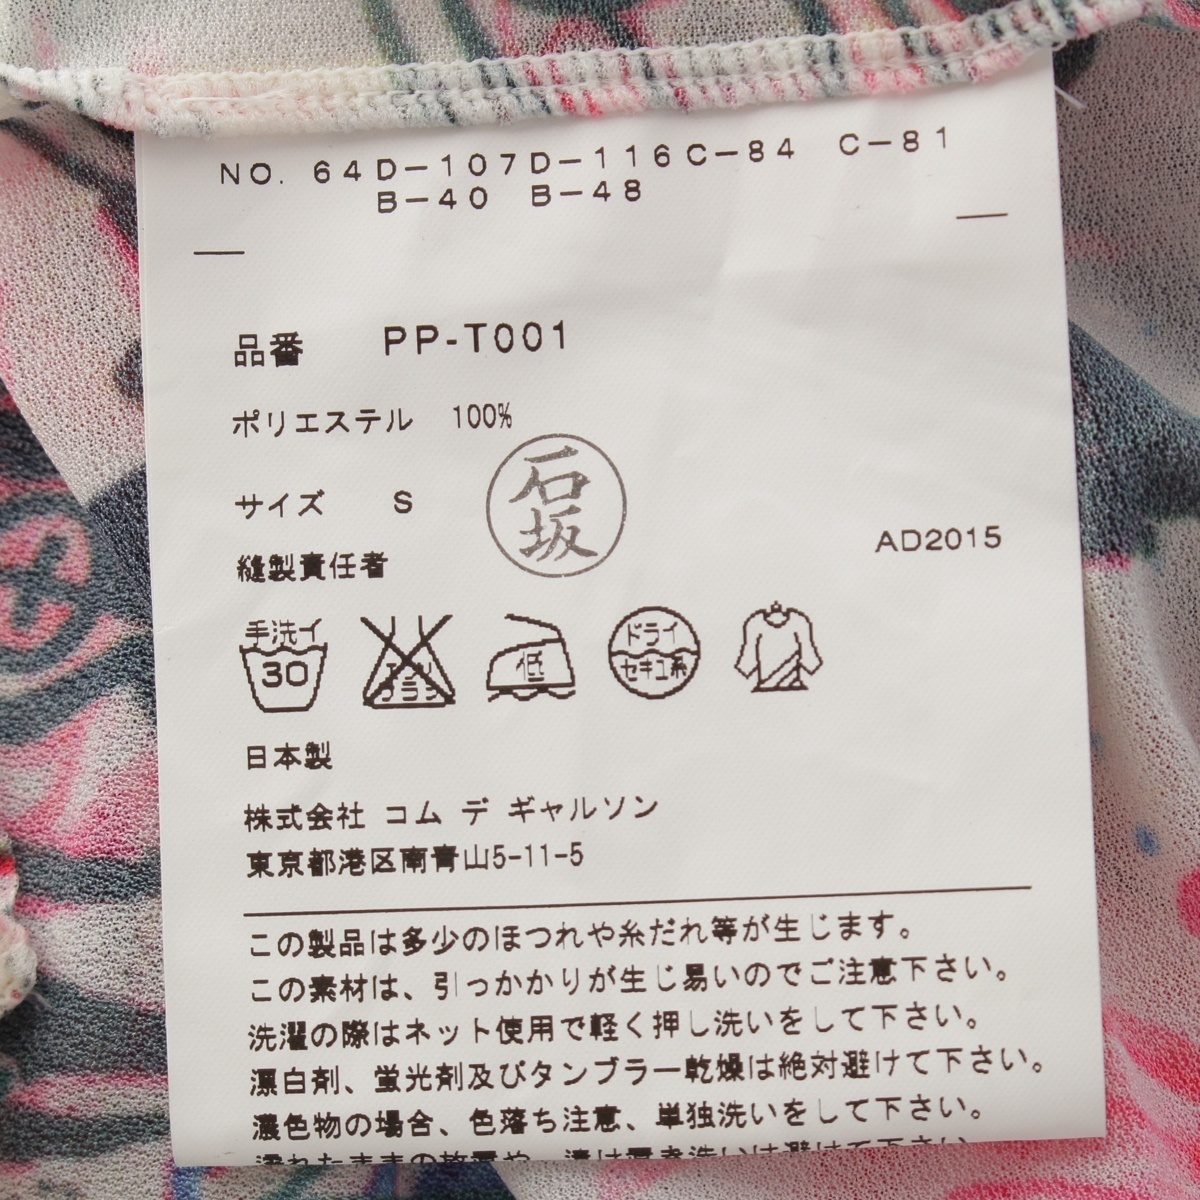 NO. 64D-107D-116C-84 C-81
B-40 B-48
品番 PP-T001
ポリエステル 100%
石坂
サイズ S
AD2015
縫製責任者
手洗イ
30
エンソ
サラシ
低
ドライ
セキユ系
日本製
株式会社 コム デ ギャルソン
東京都港区南青山5-11-5
この製品は多少のほつれや糸だれ等が生じます。
この素材は、引っかかりが生じ易いのでご注意下さい。
洗濯の際はネット使用で軽く押し洗いをして下さい。
漂白剤、蛍光剤及びタンブラー乾燥は絶対避けて下さい。
濃色物の場合、色落ち注意、単独洗いをして下さい。
濡れたままの放置や、漬け置き洗いは避けて下さい